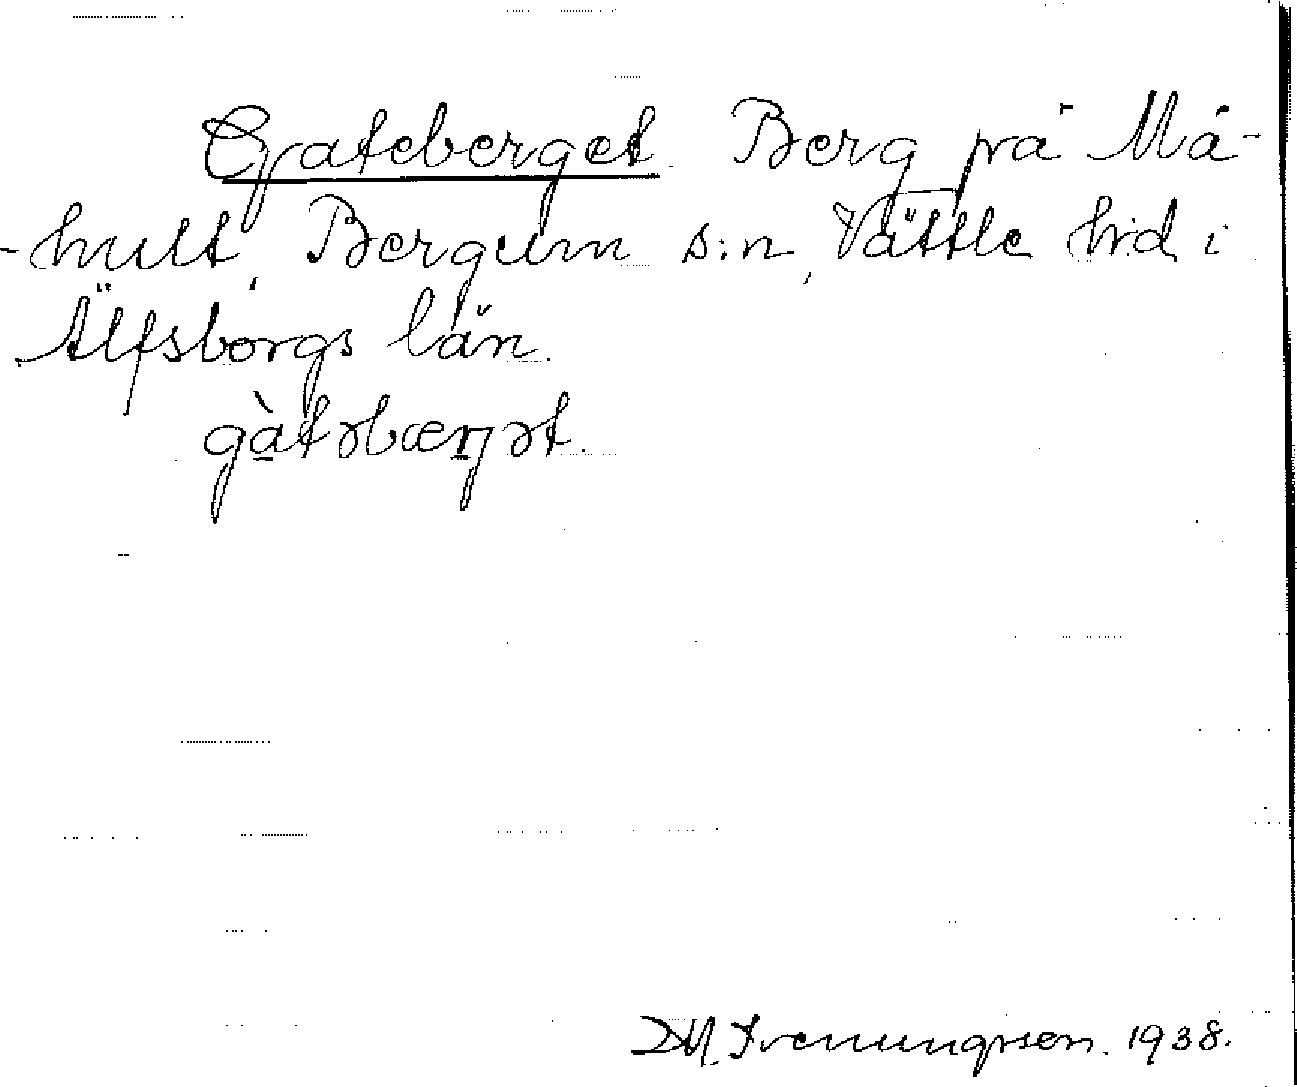 Gateberget. Berg på Må-
-hult, Bergum s:n, Vättle hrd i
Älfsborgs län.
gàtəbærjət.
DM. Svenungsson. 1938.